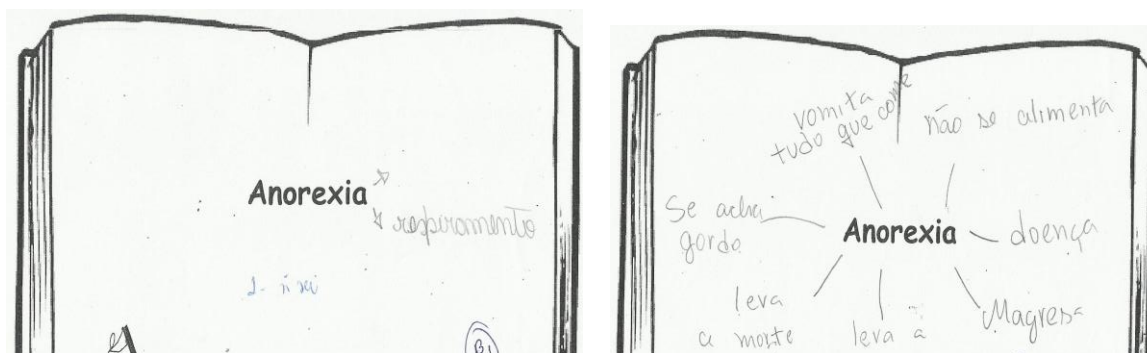 Anorexia
1- ñ sei
B1
vomita
tudo que come
não se alimenta
Se acha
gorda
Anorexia
doença
leva
a morte
leva à
Magresa